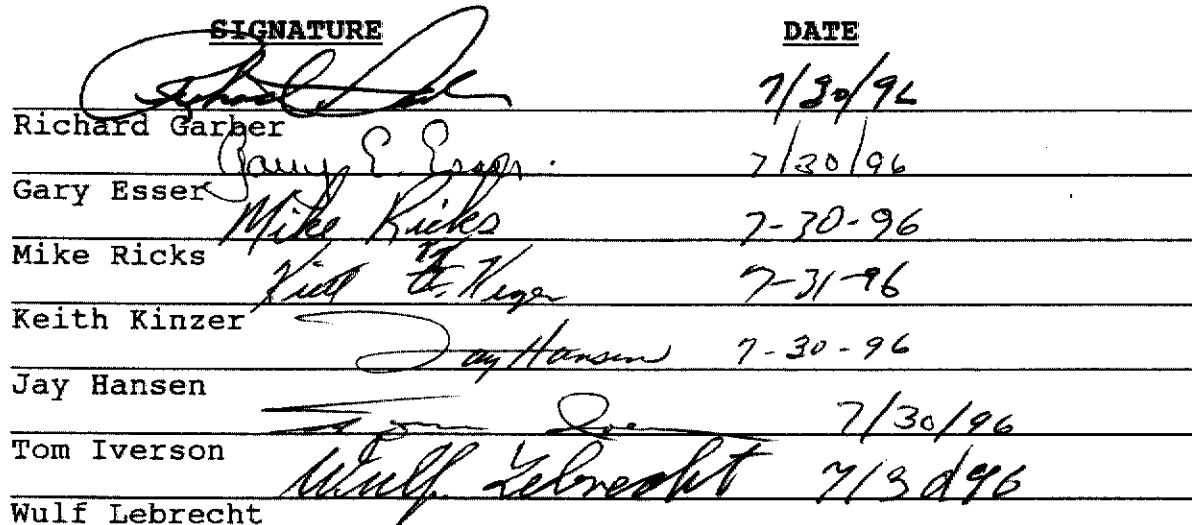 SIGNATURE DATE
7/30/96
Richard Garber
Gary E. Esser. 7/30/96
Gary Esser
Mike Ricks 7-30-96
Mike Ricks
7-31-96
Keith Kinzer
Jay Hansen 7-30-96
Jay Hansen
7/30/96
Tom Iverson
Wulf Lebrecht 7/30/96
Wulf Lebrecht